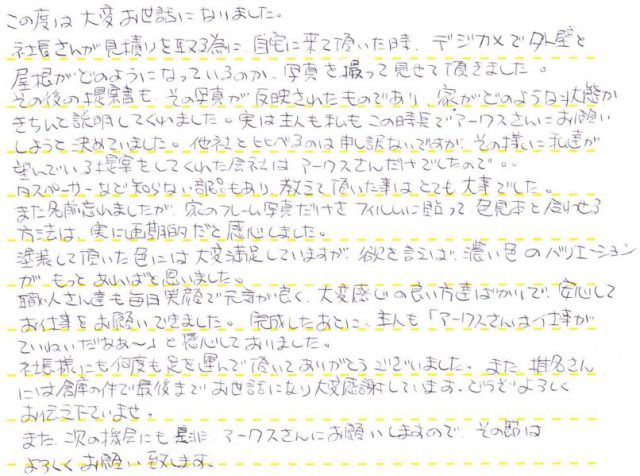 この度は大変お世話になりました。
社長さんが見積りを取る為に、自宅に来て頂いた時、デジカメで外壁と
屋根がどのようになっているのか、写真を撮って見せて頂きました。
その後の提案書も、その写真が反映されたものであり、家がどのような状態か
きちんと説明してくれました。実は主人も私もこの時点でアークスさんにお願い
しようと決めていました。他社と比べるのは申し訳ないですが、その様に私達が
望んでいる提案をしてくれた会社はアークスさんだけでしたので。。
タスペーサーなど知らない部分もあり、教えて頂いた事はとても大事でした。
また名前忘れましたが、家のフレーム写真だけをフィルムに貼って色見本と合わせる
方法は、実に画期的だと感心しました。
塗装して頂いた色には大変満足していますが、欲を言えば、濃い色のバリエーション
がもっとあればと思いました。
職人さん達も毎日笑顔で元気が良く、大変感じの良い方達ばかりで、安心して
お仕事をお願いできました。完成したあとに、主人も「アークスさんは仕事が
ていねいだなあ〜」と感心しておりました。
社長様にも何度も足を運んで頂いてありがとうございました。また、椎名さん
には倉庫の件で最後までお世話になり大変感謝しています。どうぞよろしく
お伝え下さいませ。
また、次の機会にも是非、アークスさんにお願いしますので、その節は
よろしくお願い致します。